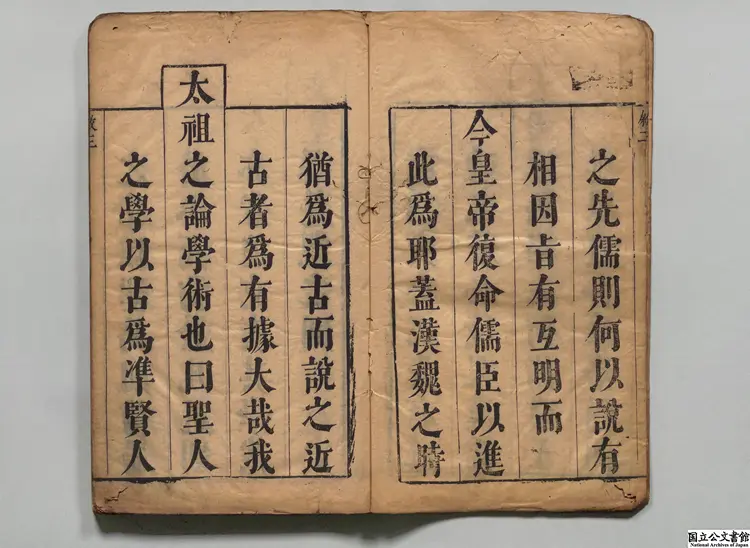 之先儒則何以說有
相因㫖有互明而
今皇帝復命儒臣以進
此為耶蓋漢魏之時
猶為近古而說之近
古者為有據大哉我
太祖之論學術也曰聖人
之學以古為準賢人
敘三
国立公文書館
National Archives of Japan